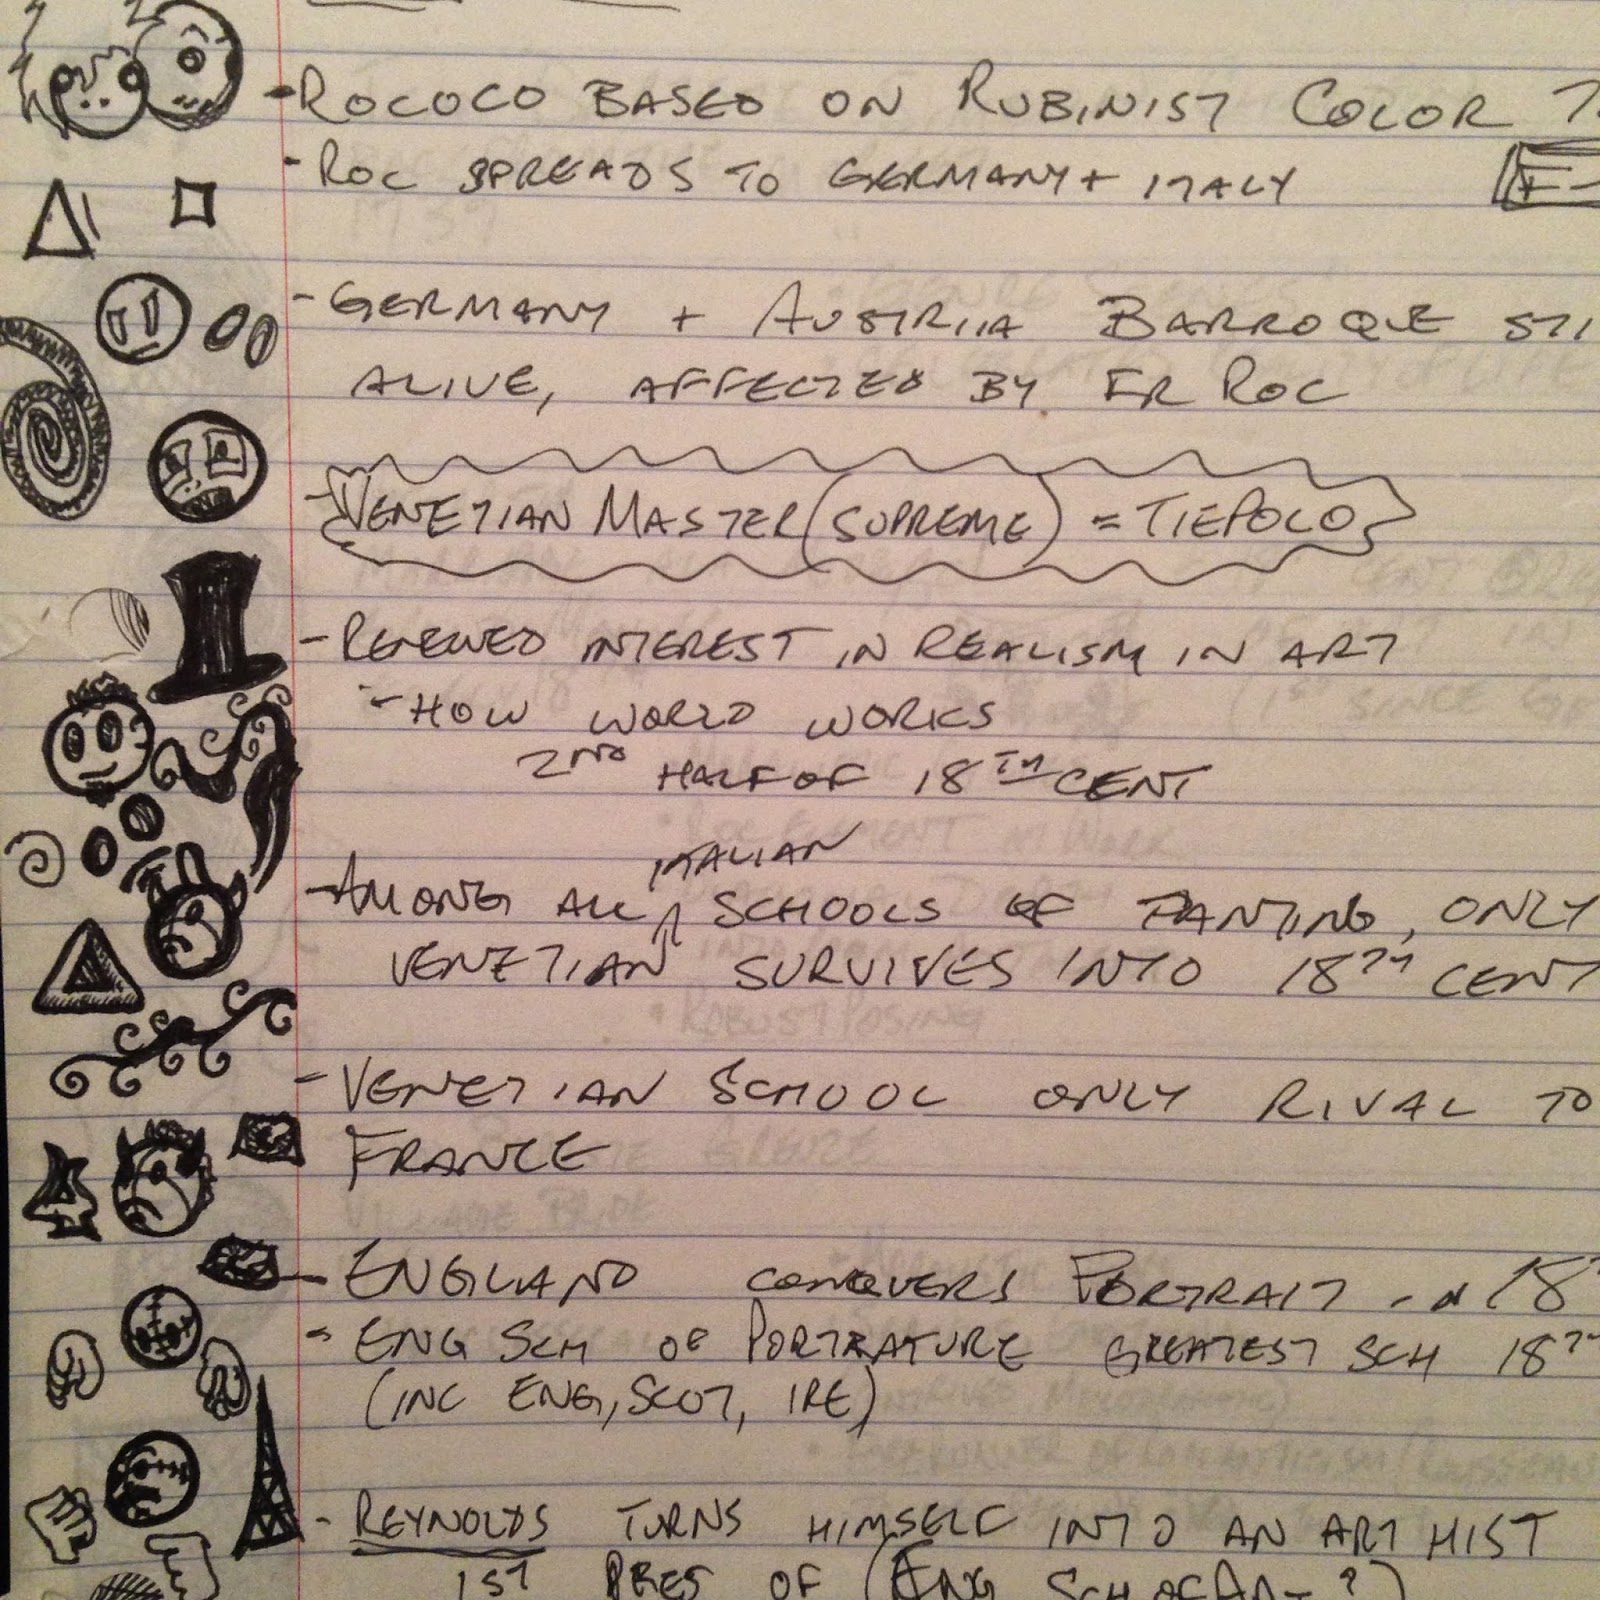 - ROCOCO BASED ON RUBINIST COLOR
- ROC SPREADS TO GERMANY + ITALY
- GERMANY + AUSTRIIA BARROQUE STI
ALIVE, AFFECTED BY FR ROC
- VENETIAN MASTER (SUPREME) = TIEPOLO
- RENEWED INTEREST IN REALISM IN ART
- HOW WORLD WORKS
2ND HALF OF 18TH CENT
- AMONG ALL ITALIAN SCHOOLS OF PANTING, ONLY
VENETIAN SURVIVES INTO 18TH CENT
- VENETIAN SCHOOL ONLY RIVAL TO
FRANCE
- ENGLAND CONQUERS PORTRAIT 18
- ENG SCH OF PORTRATURE GREATEST SCH 18TH
(INC ENG, SCOT, IRE)
- REYNOLDS TURNS HIMSELF INTO AN ART HIST
1ST PRES OF (ENG SCH OF ART ?)